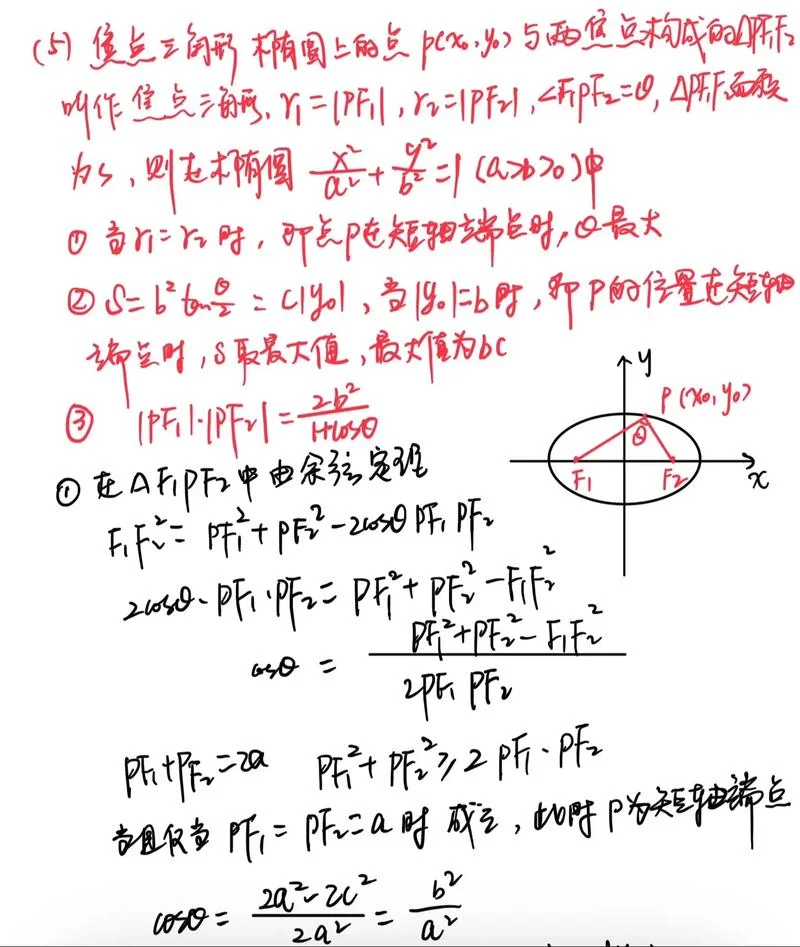 (5) 焦点三角形 椭圆上的点 P(x₀,y₀) 与两焦点构成的△PF₁F₂
叫作焦点三角形, r₁=|PF₁|, r₂=|PF₂|, ∠F₁PF₂=θ, △PF₁F₂面积
为S, 则在椭圆 x²/a² + y²/b² = 1 (a>b>0)中
① 当r₁=r₂时, 即点P在短轴端点时, θ最大
② S=b² tan θ/2 = c|y₀|, 当|y₀|=b时, 即P的位置在短轴
端点时, S取最大值, 最大值为bc
③ |PF₁|·|PF₂| = 2b²/(1+cosθ)
y
P(x₀,y₀)
θ
F₁ F₂ x
① 在△F₁PF₂中由余弦定理
F₁F₂² = PF₁² + PF₂² - 2cosθ PF₁ PF₂
2cosθ·PF₁·PF₂ = PF₁² + PF₂² - F₁F₂²
cosθ = (PF₁² + PF₂² - F₁F₂²)/(2PF₁ PF₂)
PF₁+PF₂=2a PF₁² + PF₂² ≥ 2PF₁·PF₂
当且仅当 PF₁=PF₂=a时 成立, 此时P为短轴端点
cosθ = (2a²-2c²)/(2a²) = b²/a²